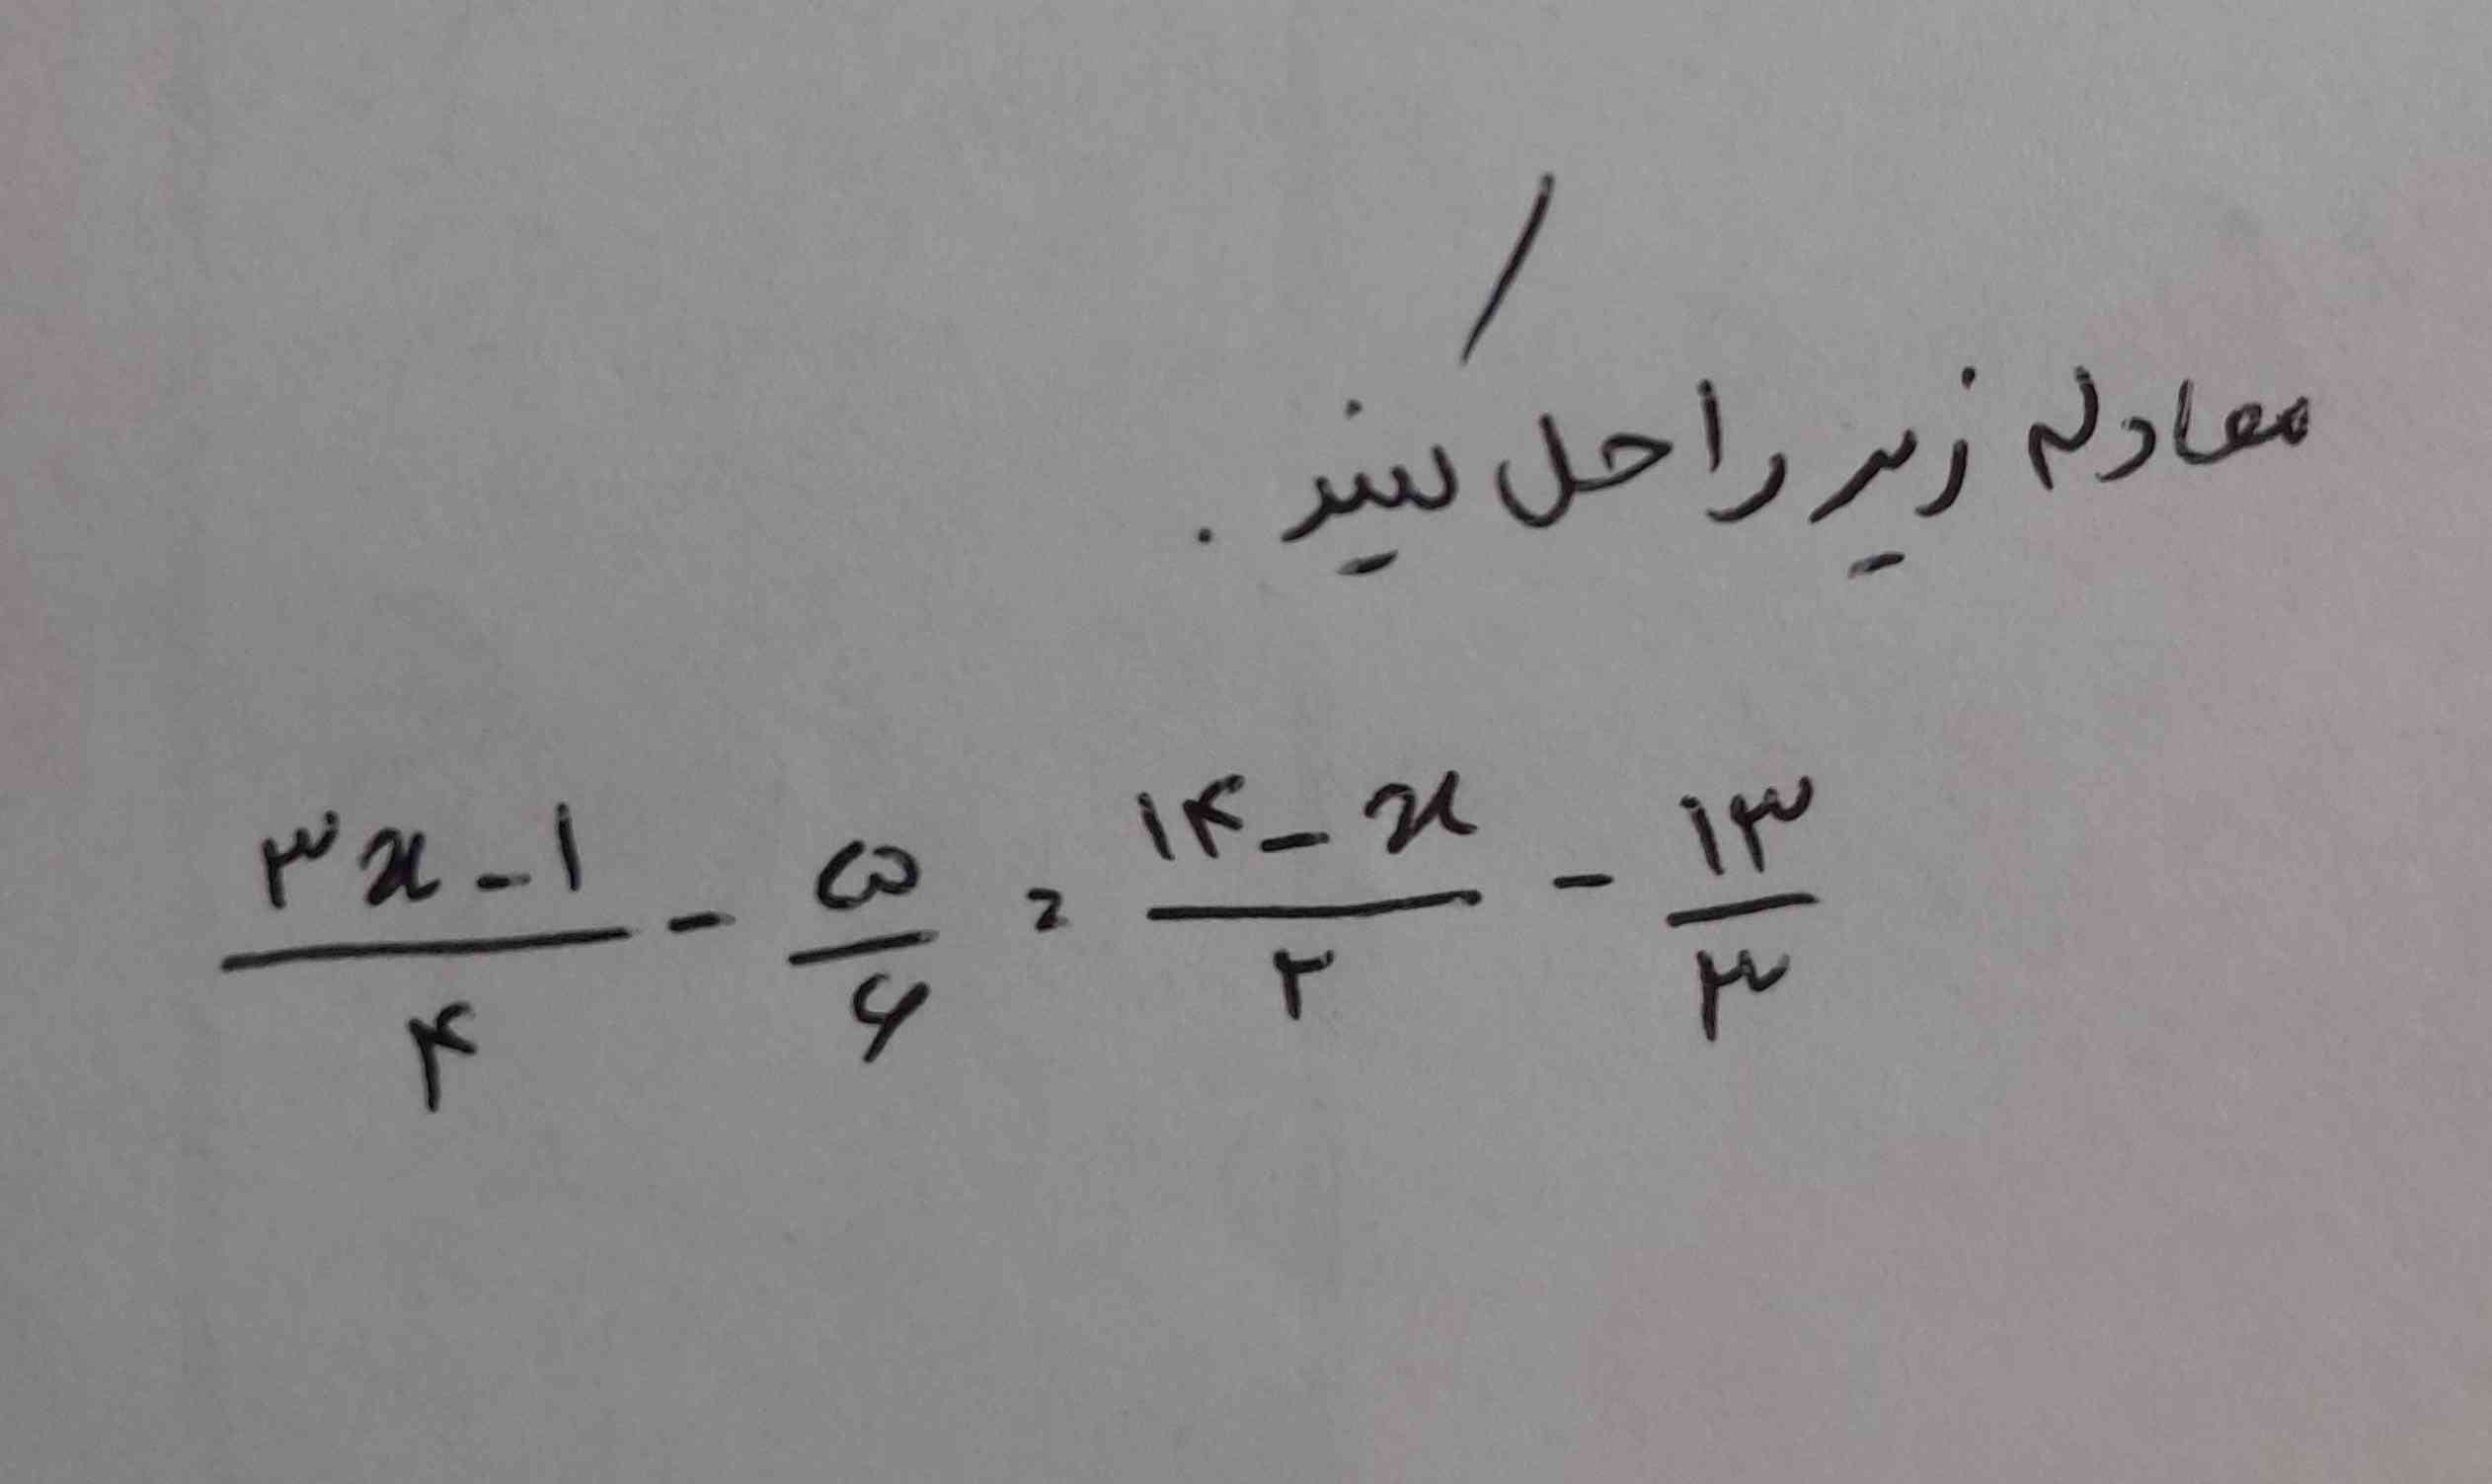 معادله زیر را حل کنید .
(۳x-۱)/۴ - ۵/۶ = (۱۴-x)/۲ - ۱۳/۳